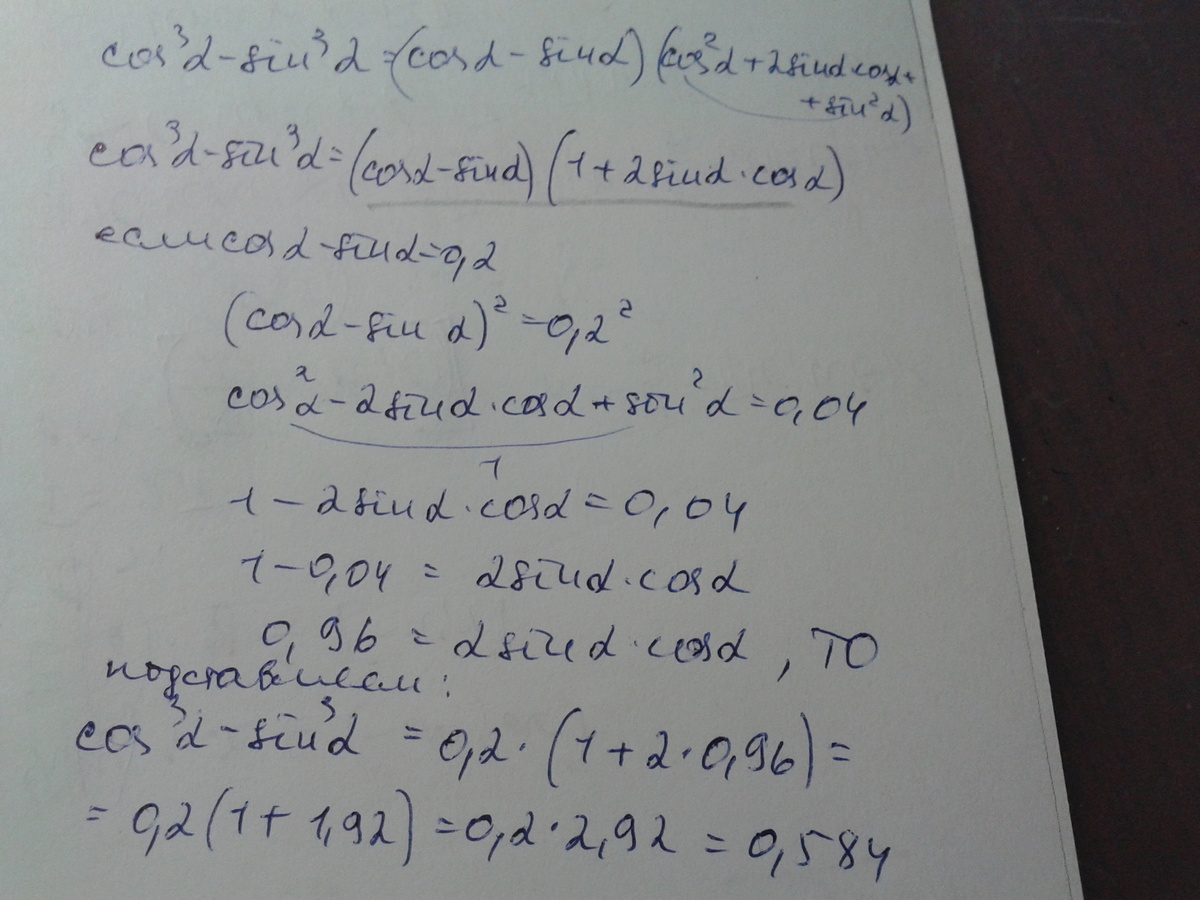 cos³α-sin³α=(cosα-sinα)(cos²α+2sinαcosα+
+sin²α)
cos³α-sin³α=(cosα-sinα)(1+2sinα·cosα)
если cosα-sinα=0,2
(cosα-sinα)²=0,2²
cos²α-2sinα·cosα+sin²α=0,04
1
1-2sinα·cosα=0,04
1-0,04=2sinα·cosα
0,96=2sinα·cosα, то
подставляем:
cos³α-sin³α=0,2·(1+2·0,96)=
=0,2(1+1,92)=0,2·2,92=0,584